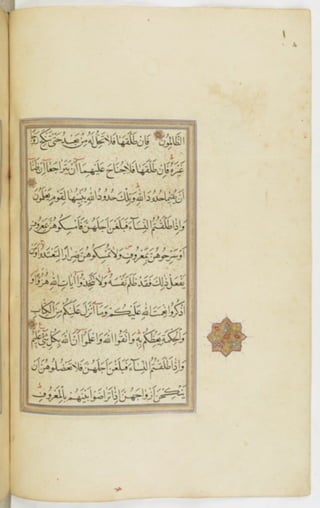 الظَّالِمُونَ فَإِن طَلَّقَهَا فَلَا تَحِلُّ لَهُ مِن بَعْدُ حَتَّى تَنكِحَ زَوْجًا
غَيْرَهُ فَإِن طَلَّقَهَا فَلَا جُنَاحَ عَلَيْهِمَا أَن يَتَرَاجَعَا إِن ظَنَّا
أَن يُقِيمَا حُدُودَ اللَّهِ وَتِلْكَ حُدُودُ اللَّهِ يُبَيِّنُهَا لِقَوْمٍ يَعْلَمُونَ
وَإِذَا طَلَّقْتُمُ النِّسَاءَ فَبَلَغْنَ أَجَلَهُنَّ فَأَمْسِكُوهُنَّ بِمَعْرُوفٍ
أَوْ سَرِّحُوهُنَّ بِمَعْرُوفٍ وَلَا تُمْسِكُوهُنَّ ضِرَارًا لِتَعْتَدُوا وَمَن
يَفْعَلْ ذَلِكَ فَقَدْ ظَلَمَ نَفْسَهُ وَلَا تَتَّخِذُوا آيَاتِ اللَّهِ هُزُوًا وَ
اذْكُرُوا نِعْمَتَ اللَّهِ عَلَيْكُمْ وَمَا أَنزَلَ عَلَيْكُم مِنَ الْكِتَابِ
وَالْحِكْمَةِ يَعِظُكُم بِهِ وَاتَّقُوا اللَّهَ وَاعْلَمُوا أَنَّ اللَّهَ بِكُلِّ شَيْءٍ عَلِيمٌ
وَإِذَا طَلَّقْتُمُ النِّسَاءَ فَبَلَغْنَ أَجَلَهُنَّ فَلَا تَعْضُلُوهُنَّ أَن
يَنكِحْنَ أَزْوَاجَهُنَّ إِذَا تَرَاضَوْا بَيْنَهُم بِالْمَعْرُوفِ